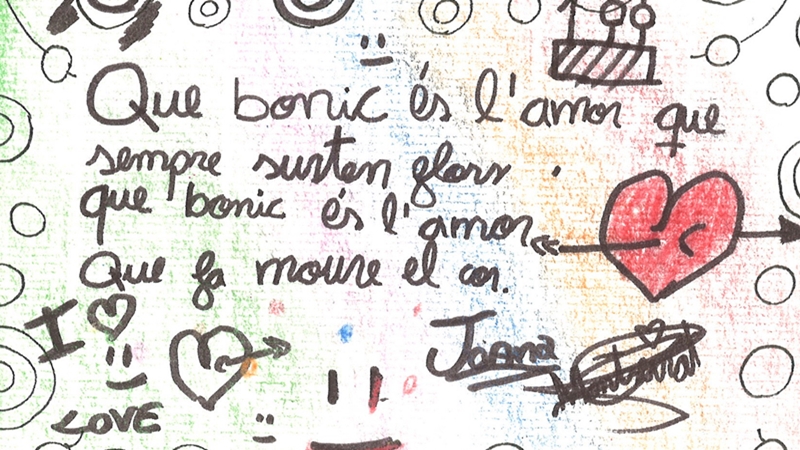 Que bonic és l'amor que
sempre surten glors.
que bonic és l'amor
Que fa moure el cor.
I
Joana
LOVE